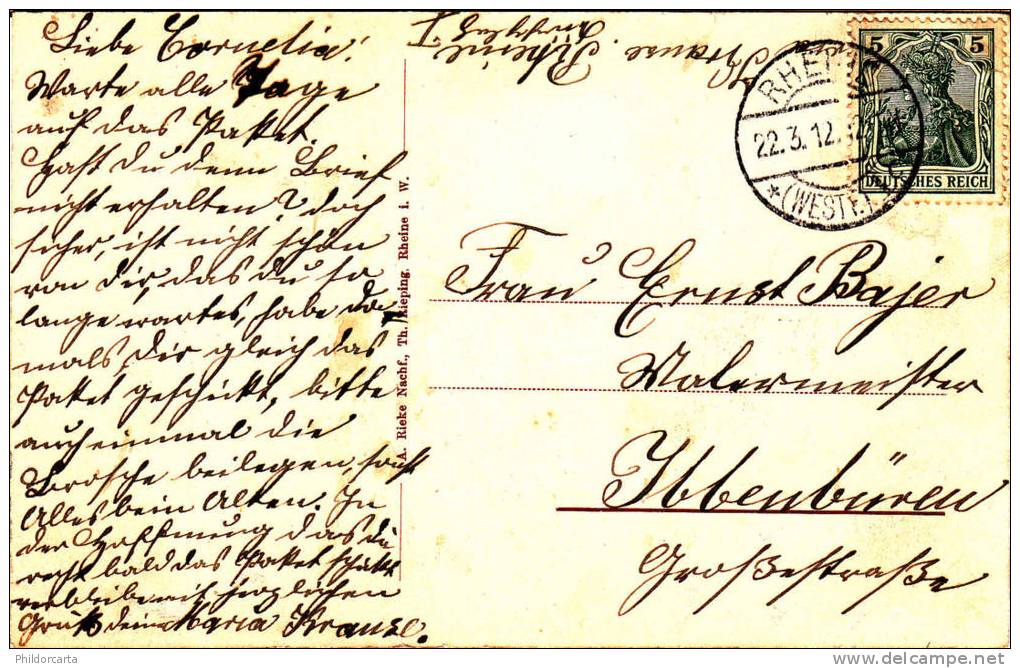 Liebe Cornelia!
Warte alle Tage
auf das Paket.
Hast du denn Brief
nicht erhalten? doch
sicher, ist nicht schön
von dir, das du so
lange wartes, habe da-
mals dir gleich das
Paket geschickt, bitte
auch einmal die
Brosche beilegen, sonst
Alles beim Alten. In
der Hoffnung das du
recht bald das Paket schickt
verbleibe mit herzlichen
Gruß deine Maria Krause.
A. Rieke Nachf., Th. Rieping, Rheine i. W.
Krause. Rheine
RHEINE
22.3.12.
(WESTF.)
5 5
DEUTSCHES REICH
Frau Ernst Bajer
Malermeister
Ibbenbüren
Großestraße
Phildorcarta